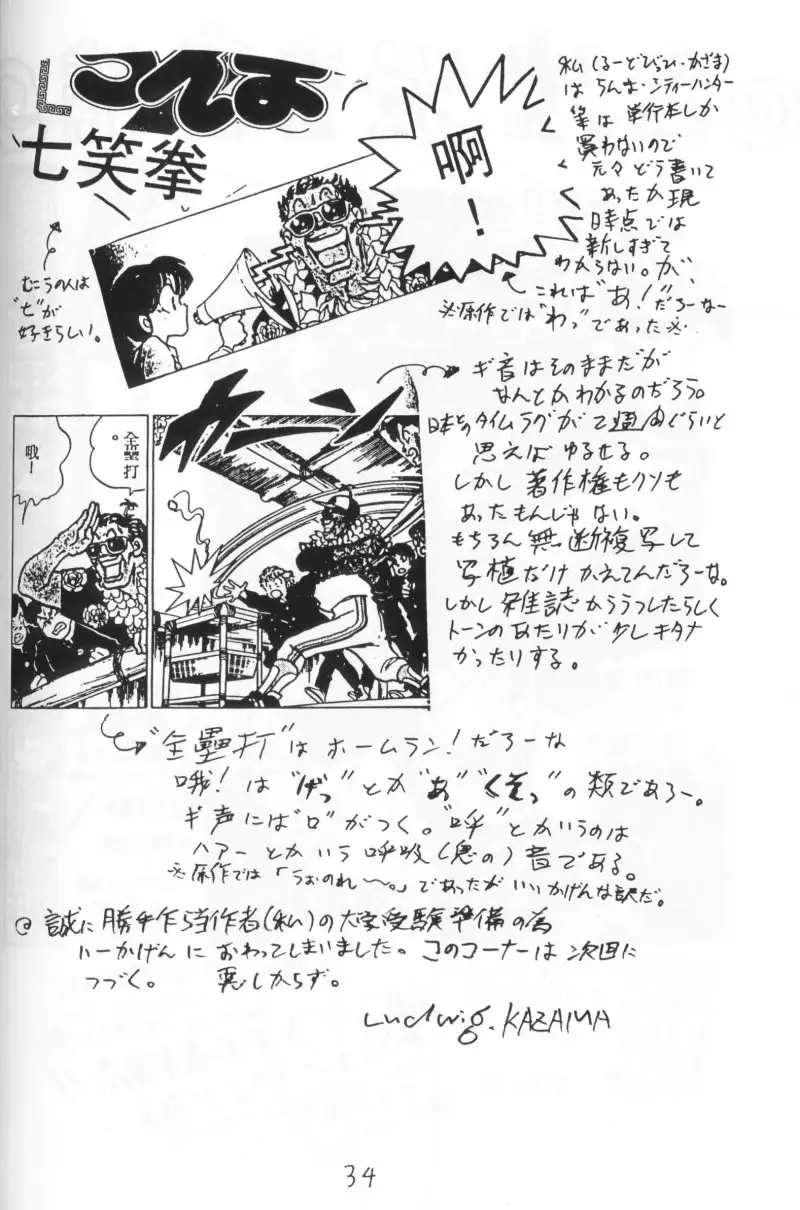 らんま
七笑拳
啊！
私(るーどびひ・かざま)
は らんま・シティーハンター
等は 単行本しか
買わないので
元々どう書いて
あったか現
時点では
新しすぎて
わからない。が、
これは"あ！"だろーなー
※原作では"わっ"であった※
むこうの人は
"七"が
好きらしい。
ギ音はそのままだが
なんとかわかるのだろう。
日本とのタイムラグが2週間ぐらいと
思えば ゆるせる。
しかし 著作権もクソも
あったもんじゃない。
もちろん 無断複写して
写植だけ かえてんだろーな。
しかし 雑誌からうつしたらしく
トーンのあたりが少しキタナ
かったりする。
カーン
全壘打。
哦！
"全壘打"は ホームラン！だろーな
哦！は "げっ"とか"あ""くそっ"の類であろー。
ギ声には"口"がつく。"呼"とかいうのは
ハァー とかいう 呼吸(息の)音である。
※原作では「うぉのれ〜。」であったがいいかげんな訳だ。
◎ 誠に 勝手乍ら当作者(私)の大学受験準備の為
いーかげんに おわってしまいました。このコーナーは 次回に
つづく。 悪しからず。
Ludwig. KAZAMA
34